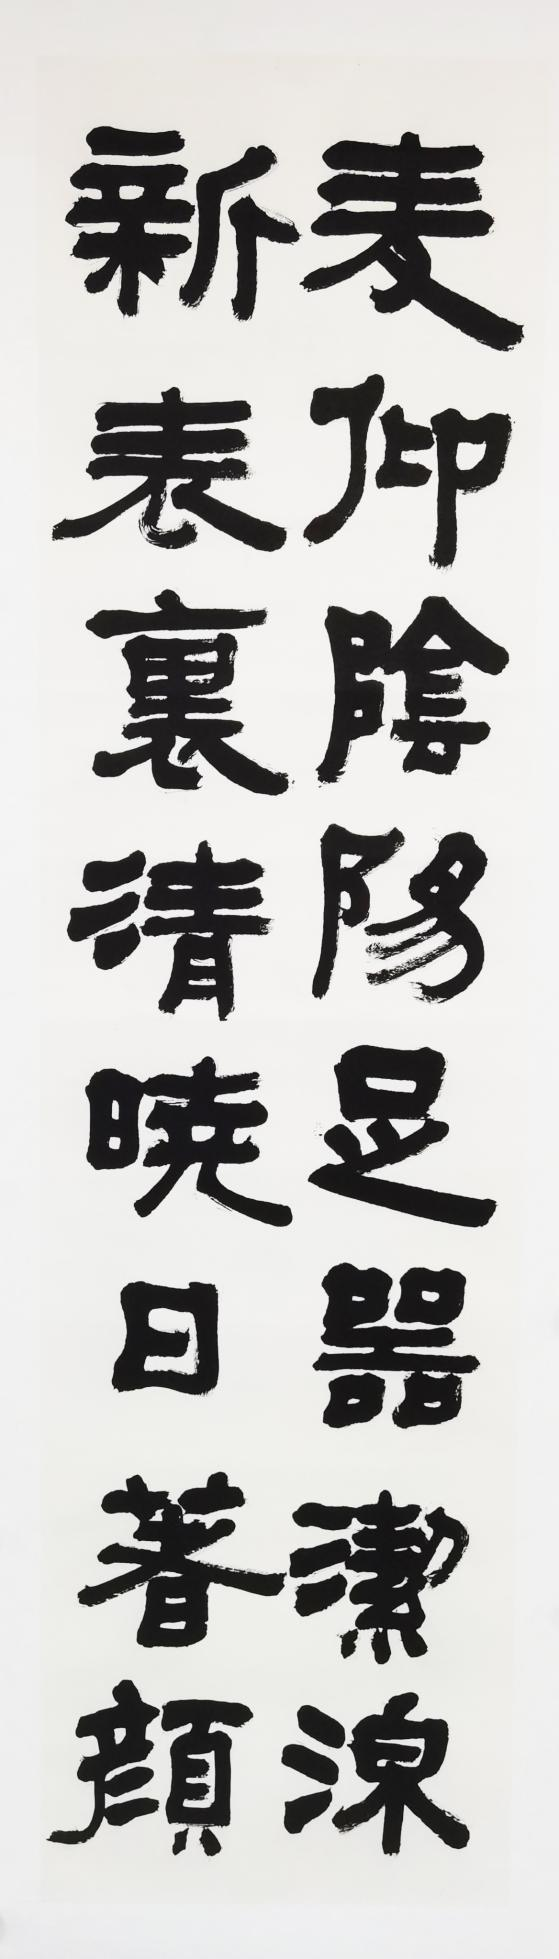 麦仰陰陽足器潔湶
新表裏清曉日著顏